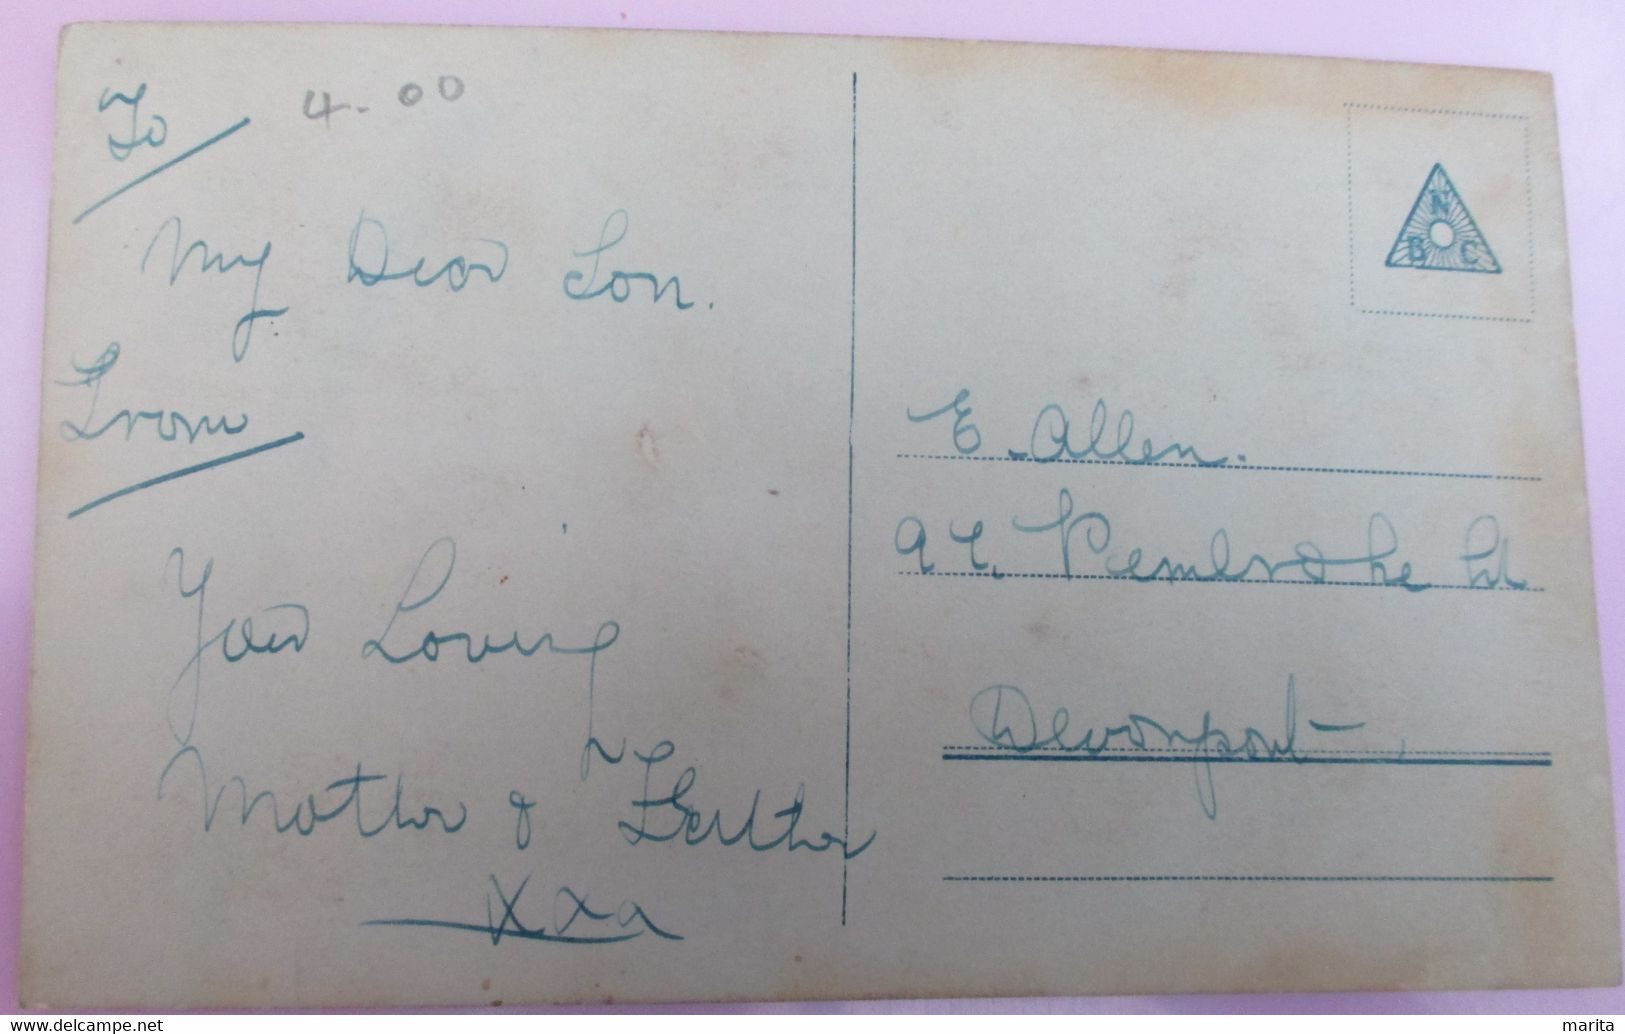 To
4-00
My Dear Son.
From
Your Loving
Mother & Father
xxx
N
B C
E. Allen.
Pembroke St
Devonport
marita